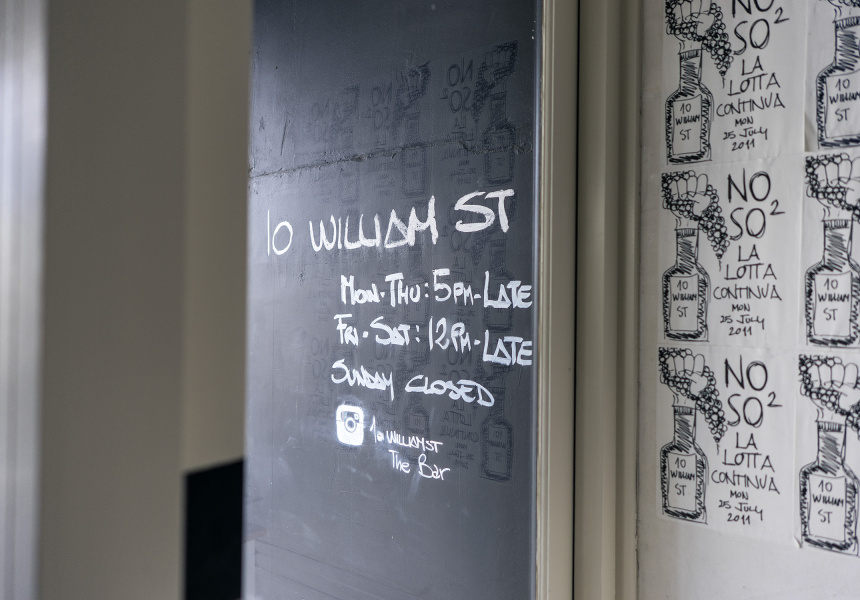 10 WILLIAM ST
MON-THU: 5PM-LATE
FRI-SAT: 12PM-LATE
SUNDAY CLOSED
10 WILLIAMST
The Bar
NO
SO²
LA
LOTTA
CONTINUA
MON
25 JULY
2011
10
WILLIAM
ST
10
WILLIAM
ST
NO
SO²
LA
LOTTA
CONTINUA
MON
25 JULY
2011
10
WILLIAM
ST
10
WILLIAM
ST
NO
SO²
LA
LOTTA
CONTINUA
MON
25 JULY
2011
10
WILLIAM
ST
10
WILLIAM
ST